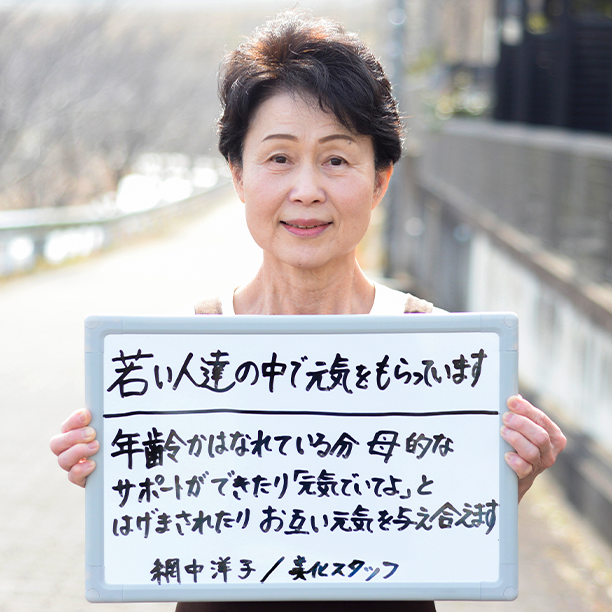 若い人達の中で元気をもらっています
年齢がはなれている分 母的な
サポートができたり「元気でいてよ」と
はげまされたり お互い元気を与え合えます
網中洋子/美化スタッフ